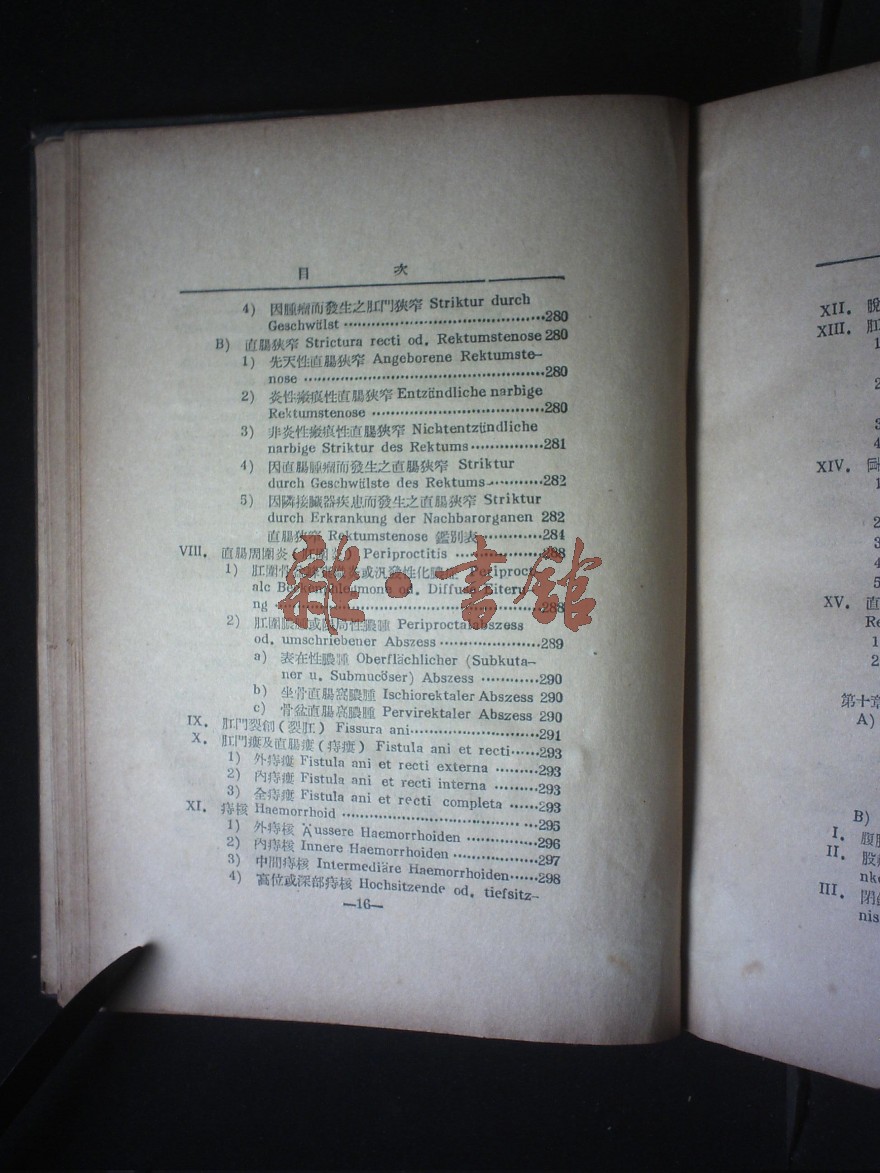 目 次
4) 因腫瘤而發生之肛門狹窄 Striktur durch
Geschwülst ……………………………280
B) 直腸狹窄 Strictura recti od. Rektumstenose 280
1) 先天性直腸狹窄 Angeborene Rektumste-
nose ……………………………………280
2) 炎性瘢痕性直腸狹窄 Entzündliche narbige
Rektumstenose …………………………280
3) 非炎性瘢痕性直腸狹窄 Nichtentzündliche
narbige Striktur des Rektums……………281
4) 因直腸腫瘤而發生之直腸狹窄 Striktur
durch Geschwülste des Rektums…………282
5) 因隣接臟器疾患而發生之直腸狹窄 Striktur
durch Erkrankung der Nachbarorganen 282
直腸狹窄 Rektumstenose 鑑別表…………284
VIII. 直腸周圍炎 Periproctitis ………………288
1) 肛圍 或汎發性化膿症 Periproct-
ale od. Diffuse Eiteru-
ng ……………………………………288
2) 肛圍膿腫或 局性膿腫 Periproctalabszess
od. umschriebener Abszess………………289
a) 表在性膿腫 Oberflächlicher (Subkuta-
ner u. Submucöser) Abszess …………290
b) 坐骨直腸窩膿腫 Ischiorektaler Abszess 290
c) 骨盆直腸窩膿腫 Pervirektaler Abszess 290
IX. 肛門裂創(裂肛) Fissura ani……………………291
X. 肛門瘻及直腸瘻(痔瘻) Fistula ani et recti……293
1) 外痔瘻 Fistula ani et recti externa ………293
2) 內痔瘻 Fistula ani et recti interna ………293
3) 全痔瘻 Fistula ani et recti completa ……293
XI. 痔核 Haemorrhoid ……………………………295
1) 外痔核 Äussere Haemorrhoiden ……………296
2) 內痔核 Innere Haemorrhoiden ………………297
3) 中間痔核 Intermediäre Haemorrhoiden……298
4) 高位或深部痔核 Hochsitzende od. tiefsitz-
—16—
雜·書館
XII. 脫
XIII. 肛
1
2
3
4
XIV.
1
2
3
4
5
XV. 直
Re
1
2
第十章
A)
B)
I. 腹
II. 股
nke
III. 閉
nis